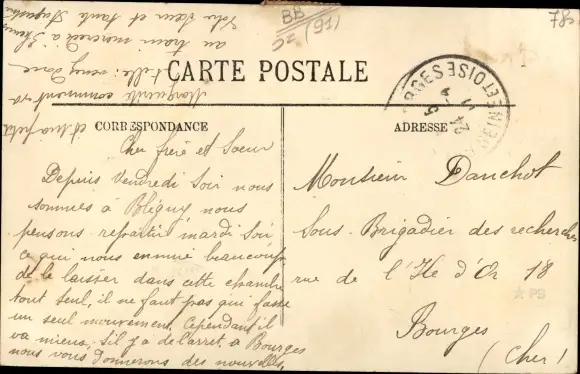 CARTE POSTALE
CORRESPONDANCE
ADRESSE
Cher frère et Soeur
Depuis Vendredi Soir nous
sommes à Bligny nous
pensons repartir mardi Soir
ce qui nous ennuie beaucoup
de le laisser dans cette chambre
tout seul, il ne faut pas qui fasse
un seul mouvement. Cependant il
va mieux, s'il y a de l'arret, à Bourges
nous vous donnerons des nouvelles
et ma petite
Marguerite comment va
t elle: venez donc
au train mercredi à
Votre Soeur et tante Augustine
Monsieur Danchot
Sous-Brigadier des recherches
rue de l'Ile d'Or 18
Bourges
(Cher)
BB
(91)
78
SEINE ET OISE
★ PB